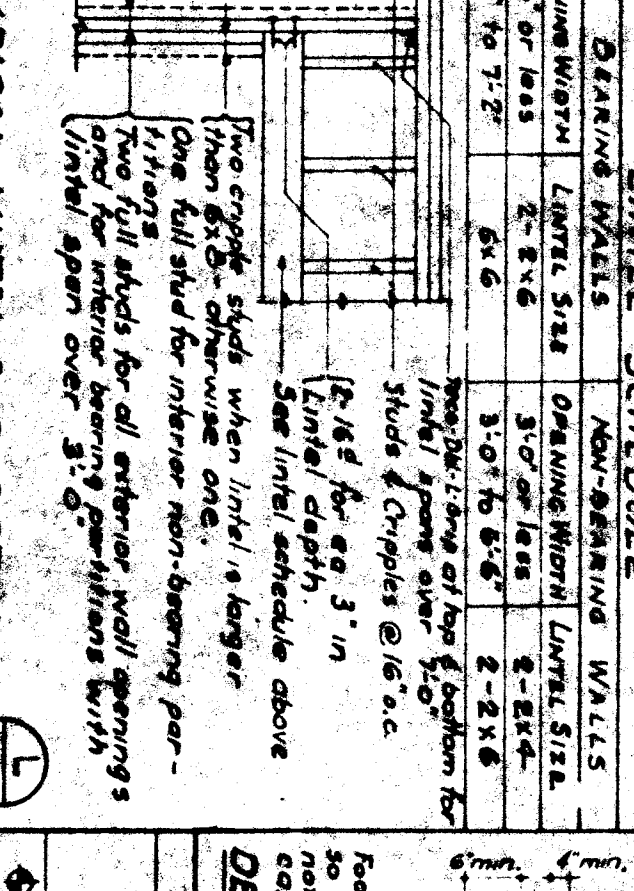 BEARING WALLS
NON-BEARING WALLS
LINTEL SIZE
OPENING WIDTH
LINTEL SIZE
" or less
2-2x6
3'-0" or less
2-2x4
" to 7'-2"
6x6
3'-0" to 6'-6"
2-2x6
lintel spans over 7'-0"
Studs & Cripples @ 16" o.c.
2-16d for ea 3" in
Lintel depth.
See lintel schedule above
Two cripple studs when lintel is larger
than 6x8 - otherwise one.
One full stud for interior non-bearing par-
titions
Two full studs for all exterior wall openings
and for interior bearing partitions with
lintel span over 3'-0"
L
6" min.
4" min.
so
DE